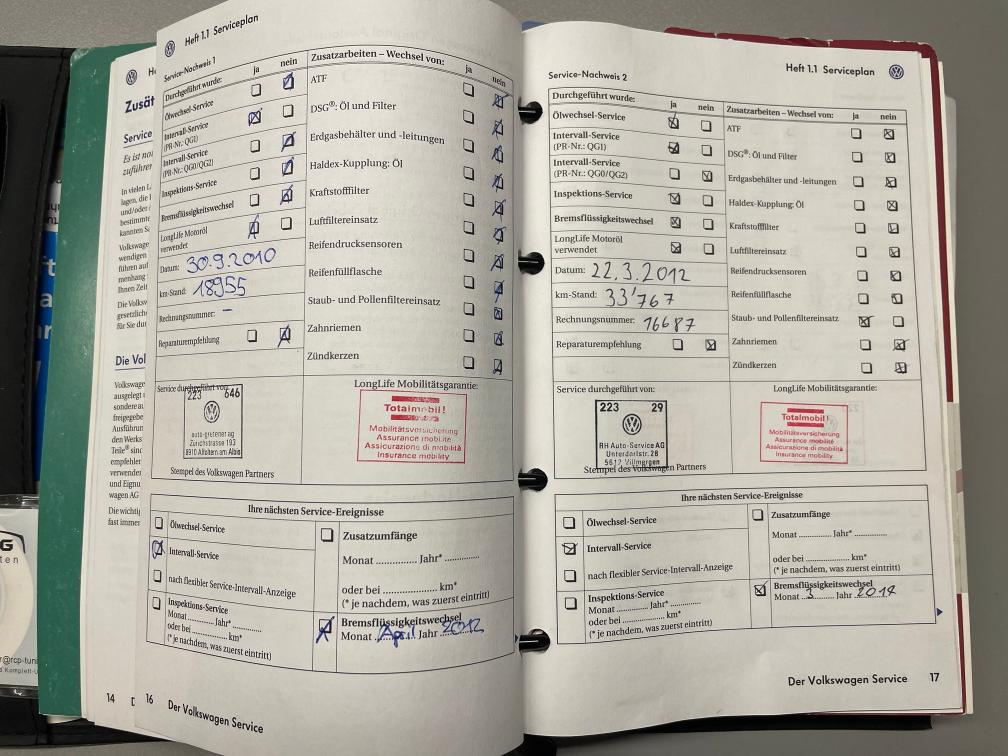 Zusät
Service
Es ist no
zuführe
In vielen L
lagen, die
und/oder
bestimmte
kannten Se
Volkswage
wendigen
führen auf
menhang
Ihnen Zeit
Die Volksw
gesetzliche
für Sie dur
Die Vol
Volkswage
ausgelegt
sondere au
freigegebe
Ausführun
den Werks
Teile® sind
empfehler
verwender
und Eignu
wagen AG
Die wichtig
fast immer
14
Heft 1.1 Serviceplan
Service-Nachweis 1
Durchgeführt wurde: ja nein
Ölwechsel-Service
Intervall-Service
(PR-Nr.: QG1)
Intervall-Service
(PR-Nr.: QG0/QG2)
Inspektions-Service
Bremsflüssigkeitswechsel
LongLife Motoröl
verwendet
Datum: 30.9.2010
km-Stand: 18955
Rechnungsnummer: –
Reparaturempfehlung
Zusatzarbeiten – Wechsel von: ja nein
ATF
DSG®: Öl und Filter
Erdgasbehälter und -leitungen
Haldex-Kupplung: Öl
Kraftstofffilter
Luftfiltereinsatz
Reifendrucksensoren
Reifenfüllflasche
Staub- und Pollenfiltereinsatz
Zahnriemen
Zündkerzen
Service durchgeführt von:
223 646
auto-grelener ag
Zürichstrasse 193
8910 Affoltern am Albis
Stempel des Volkswagen Partners
LongLife Mobilitätsgarantie:
Totalmobil!
Mobilitätsversicherung
Assurance mobilité
Assicurazione di mobilità
Insurance mobility
Ihre nächsten Service-Ereignisse
Ölwechsel-Service
Intervall-Service
nach flexibler Service-Intervall-Anzeige
Inspektions-Service
Monat ............ Jahr* ............
oder bei ............ km*
(* je nachdem, was zuerst eintritt)
Zusatzumfänge
Monat ............ Jahr* ............
oder bei ............ km*
(* je nachdem, was zuerst eintritt)
Bremsflüssigkeitswechsel
Monat April Jahr 2012
16 Der Volkswagen Service
Heft 1.1 Serviceplan
Service-Nachweis 2
Durchgeführt wurde: ja nein
Ölwechsel-Service
Intervall-Service
(PR-Nr.: QG1)
Intervall-Service
(PR-Nr.: QG0/QG2)
Inspektions-Service
Bremsflüssigkeitswechsel
LongLife Motoröl
verwendet
Datum: 22.3.2012
km-Stand: 33'767
Rechnungsnummer: 16687
Reparaturempfehlung
Zusatzarbeiten – Wechsel von: ja nein
ATF
DSG®: Öl und Filter
Erdgasbehälter und -leitungen
Haldex-Kupplung: Öl
Kraftstofffilter
Luftfiltereinsatz
Reifendrucksensoren
Reifenfüllflasche
Staub- und Pollenfiltereinsatz
Zahnriemen
Zündkerzen
Service durchgeführt von:
223 29
RH Auto-Service AG
Unterdorfstr. 28
5612 Villmergen
Stempel des Volkswagen Partners
LongLife Mobilitätsgarantie:
Totalmobil!
Mobilitätsversicherung
Assurance mobilité
Assicurazione di mobilità
Insurance mobility
Ihre nächsten Service-Ereignisse
Ölwechsel-Service
Intervall-Service
nach flexibler Service-Intervall-Anzeige
Inspektions-Service
Monat ............ Jahr* ............
oder bei ............ km*
(* je nachdem, was zuerst eintritt)
Zusatzumfänge
Monat ............ Jahr* ............
oder bei ............ km*
(* je nachdem, was zuerst eintritt)
Bremsflüssigkeitswechsel
Monat 3 Jahr 2014
Der Volkswagen Service 17